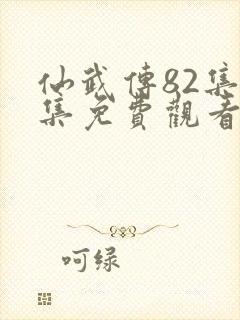 仙武傳82集
集免費觀看
呵绿